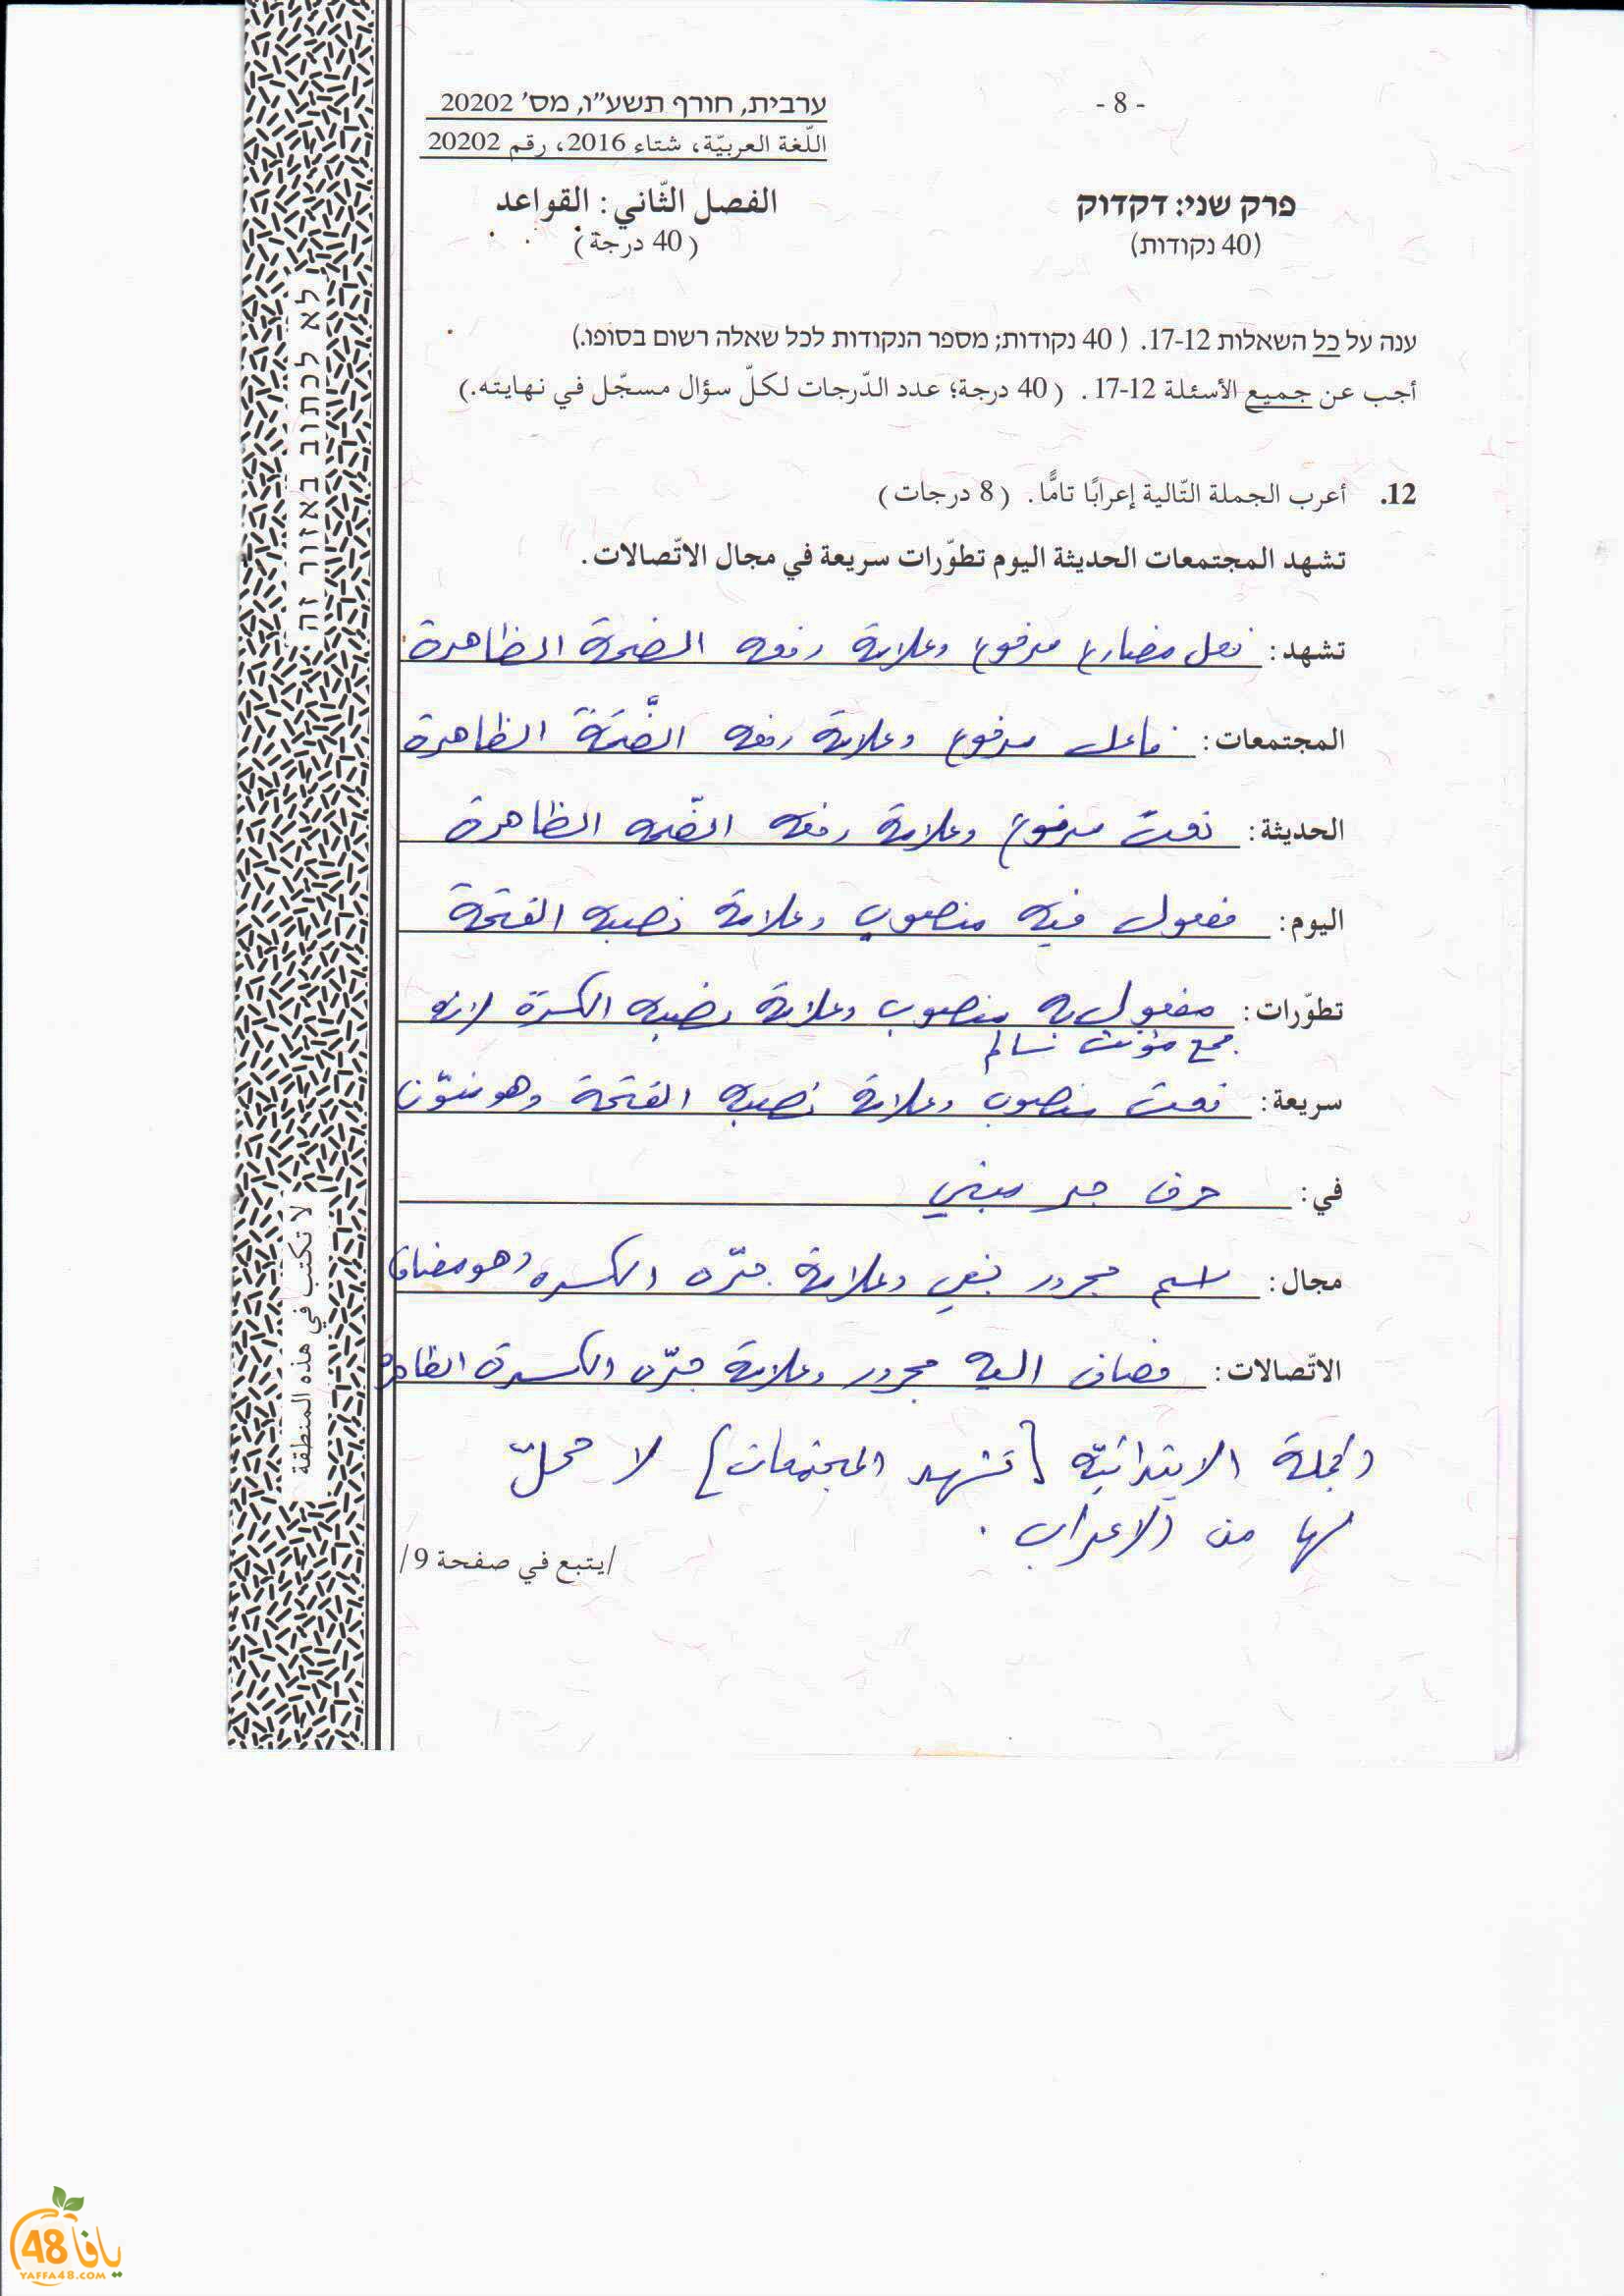 - 8 -
ערבית, חורף תשע"ו, מס' 20202
اللّغة العربيّة، شتاء 2016، رقم 20202
פרק שני: דקדוק
(40 נקודות)
الفصل الثّاني: القواعد
(40 درجة)
ענה על כל השאלות 12-17. (40 נקודות; מספר הנקודות לכל שאלה רשום בסופו.)
أجب عن جميع الأسئلة 12-17. (40 درجة؛ عدد الدّرجات لكلّ سؤال مسجّل في نهايته.)
12. أعرب الجملة التّالية إعرابًا تامًّا. (8 درجات)
تشهد المجتمعات الحديثة اليوم تطوّرات سريعة في مجال الاتّصالات.
تشهد: فعل مضارع مرفوع وعلامة رفعه الضمة الظاهرة
المجتمعات: فاعل مرفوع وعلامة رفعه الضَّمَّة الظاهرة
الحديثة: نعت مرفوع وعلامة رفعه الضّمه الظاهرة
اليوم: مفعول فيه منصوب وعلامة نصبه الفتحة
تطوّرات: مفعول به منصوب وعلامة نصبه الكسرة لانه
جمع مؤنث سالم
سريعة: نعت منصوب وعلامة نصبه الفتحة وهو منوّن
في: حرف جر مبني
مجال: اسم مجرور بفي وعلامة جرّه الكسره وهو مضاف
الاتّصالات: مضاف اليه مجرور وعلامة جرّه الكسرة الظاهرة
والجملة الابتدائيّه [تشهد المجتمعات] لا محلّ
لها من الاعراب.
/يتبع في صفحة 9/
לא לכתוב באזור זה
لا تكتب في هذه المنطقة
يافا 48
YAFFA48.COM